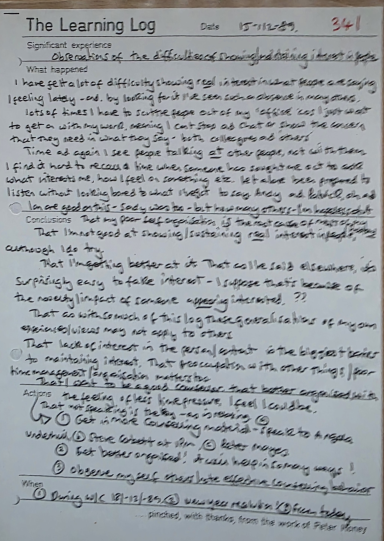 The Learning Log Date 15-12-89. 341
Significant experience
Observations of the difficulties of showing/maintaining interest in people
What happened
I have felt a lot of difficulty showing real interest in what people are saying
I feeling lately - and by looking for it I've seen such a absence in many others.
lots of times I have to scuttle people out of my 'office' cos I just want
to get on with my work, meaning I can't stop and chat or show the concern
that they need in what they say - both colleagues and others
Time and again I see people talking at other people, not with them
I find it hard to recall a time when someone has sought me out to ask
what interests me, how I feel on something etc. let alone been prepared to
listen without looking bored to what I want to say
I am as good on this - so do we too - but how many others
Conclusions That my poor self organisation is the root cause of most of this
That I'm not good at showing/sustaining real interest in people,
although I do try.
That I'm getting better at it That as I've said elsewhere, it's
surprisingly easy to fake interest - I suppose that's because of
the novelty/impact of someone appearing interested. ??
That as with so much of this log these generalisations of my own
experiences/views may not apply to others
That lack of interest in the person/content is the biggest barrier
to maintaining interest. That preoccupation with other things/poor
time management/organisation matters too
That I want to be a good counsellor that better organised with
Actions the feeling of less time pressure, I feel I could be.
That not speaking is the key - as in reading
① Get in more counselling material - speak to Angela
② Get better organised! It will help in so many ways!
③ Observe myself/others more effective counselling behaviour
When
① During W/C 18/12/89 ② New year resolution ③ From today
... pinched, with thanks, from the work of Peter Honey